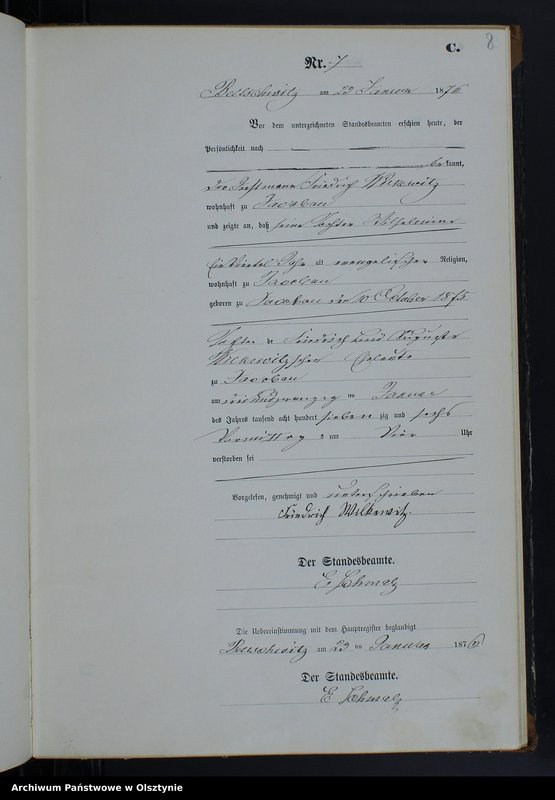 C.
8
Nr. 7
Bellschwitz am 23 Januar 1876
Vor dem unterzeichneten Standesbeamten erschien heute, der
Persönlichkeit nach
bekannt,
der Friedrich Wilkewitz
wohnhaft zu Jacobau
und zeigte an, daß seine Tochter Wilhelmine
Ein Viertel Jahr alt evangelischer Religion,
wohnhaft zu Jacobau
geboren zu Jacobau den 10 October 1875
Tochter de Friedrich und Auguste
Wilkewitzschen Eheleute
zu Jacobau
am zwanzig ten Januar
des Jahres tausend acht hundert sieben zig und sechs
Vormittag s um Uhr
verstorben sei
Vorgelesen, genehmigt und unterschrieben
Friedrich Wilkewitz.
Der Standesbeamte.
E. Schmalz
Die Uebereinstimmung mit dem Hauptregister beglaubigt
Bellschwitz am 23 ten Januar 1876
Der Standesbeamte.
E Schmalz
Archiwum Państwowe w Olsztynie